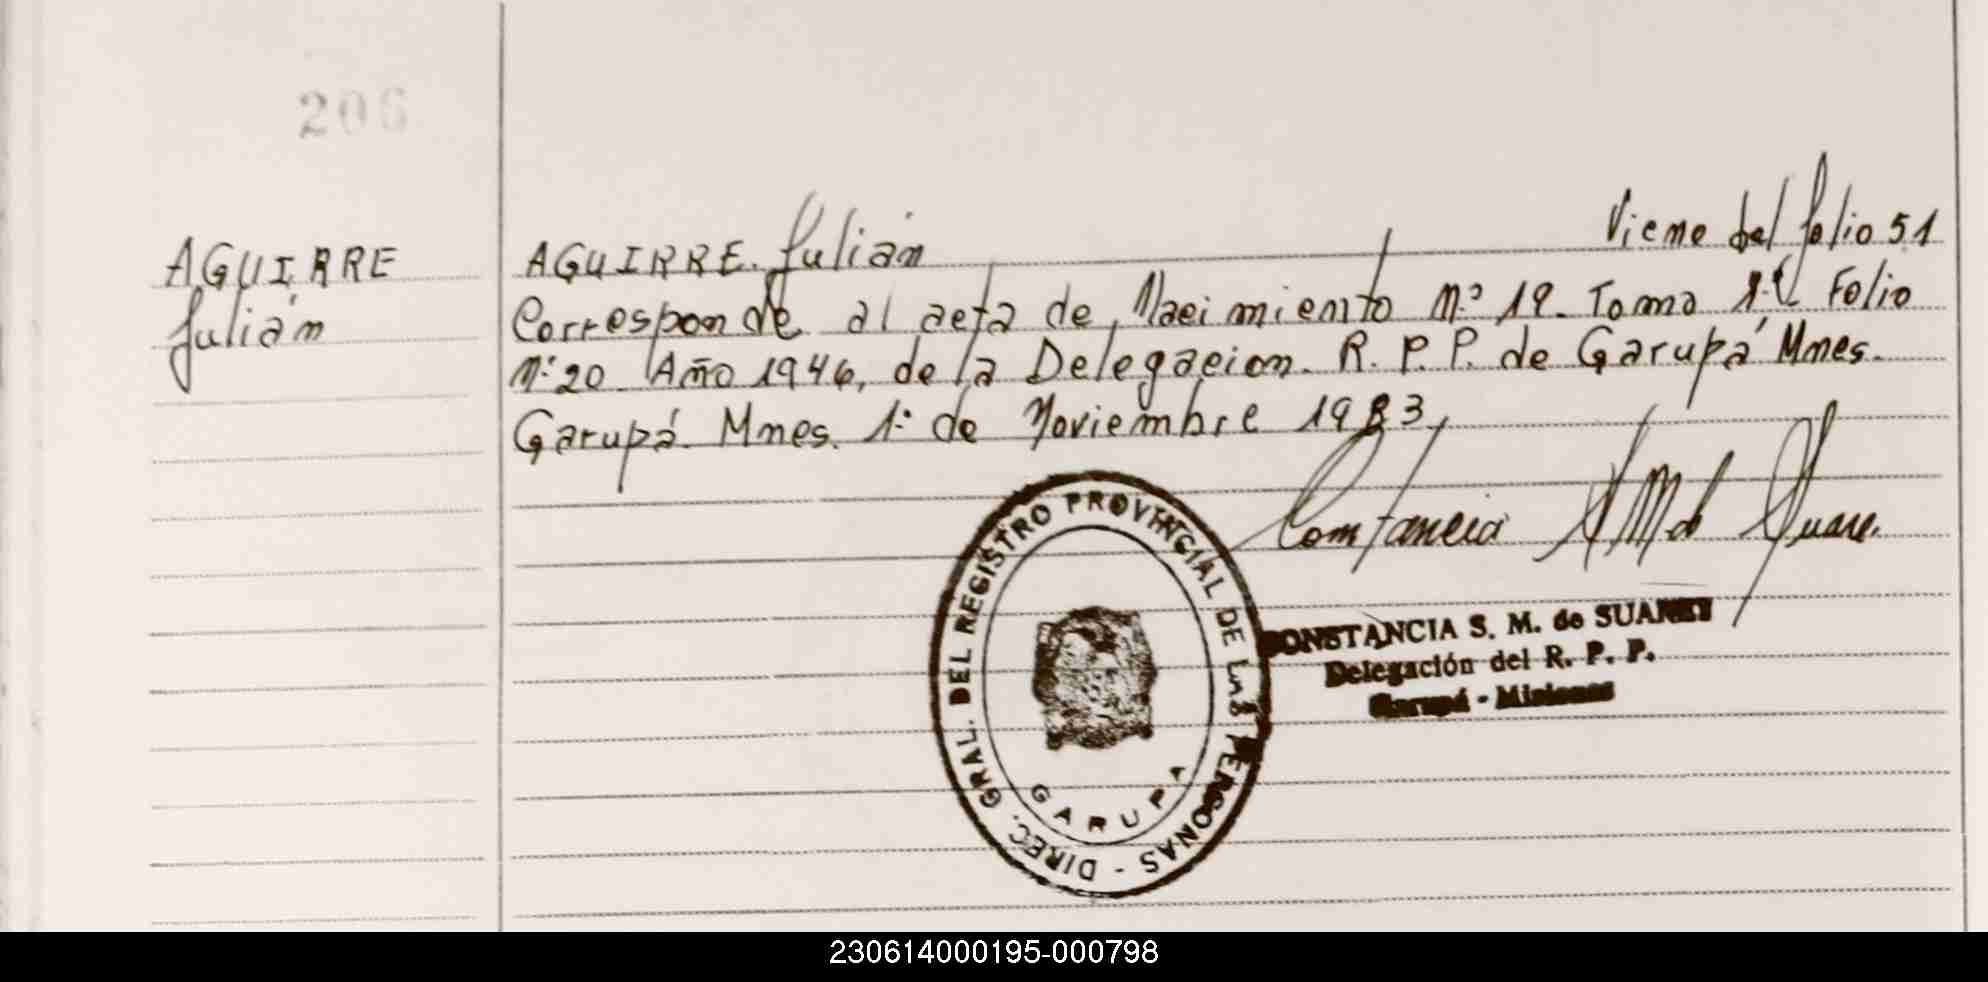 206
AGUIRRE
Julián
Viene del folio 51
AGUIRRE. Julián
Corresponde al acta de Nacimiento Nº 19. Tomo 1º Folio
Nº 20. Año 1946, de la Delegacion. R. P. P. de Garupá Mnes.
Garupá. Mnes. 1º de Noviembre 1983,
Constancia S M de Suarez
CONSTANCIA S. M. de SUAREZ
Delegación del R. P. P.
Garupá - Misiones
DIREC. GRAL. DEL REGISTRO PROVINCIAL DE LAS PERSONAS -
GARUPA
230614000195-000798